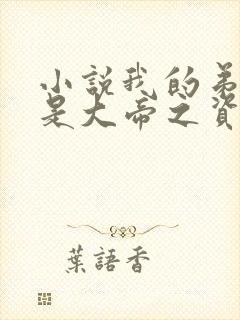 小說我的弟
是大帝之資
葉語香